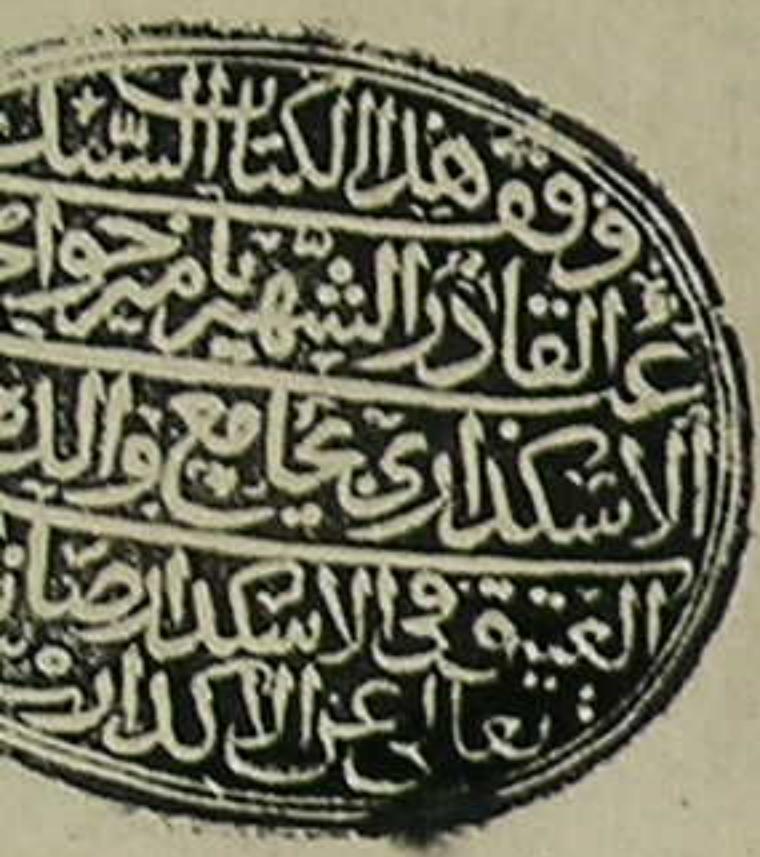 وقف هذا الكتاب السيد
عبد القادر الشهير بامير خواجه
الاسكداري بجامع والده
العتيقة في الاسكدار صانها
تعالى عن الاكدار